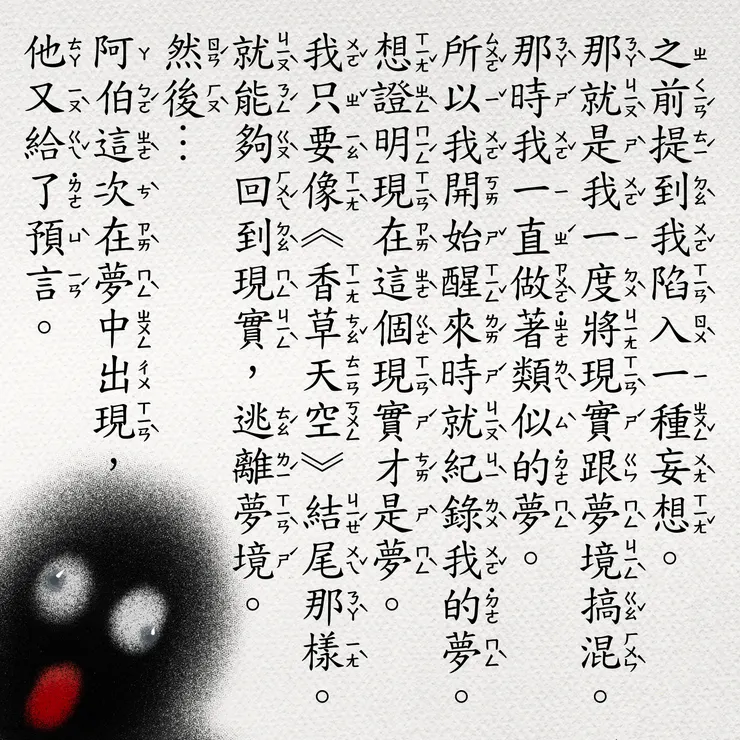 之前提到我陷入一種妄想。
那就是我一度將現實跟夢境搞混。
那時我一直做著類似的夢。
所以我開始醒來時就紀錄我的夢。
想證明現在這個現實才是夢。
我只要像《香草天空》結尾那樣。
就能夠回到現實，逃離夢境。
然後…
阿伯這次在夢中出現，
他又給了預言。